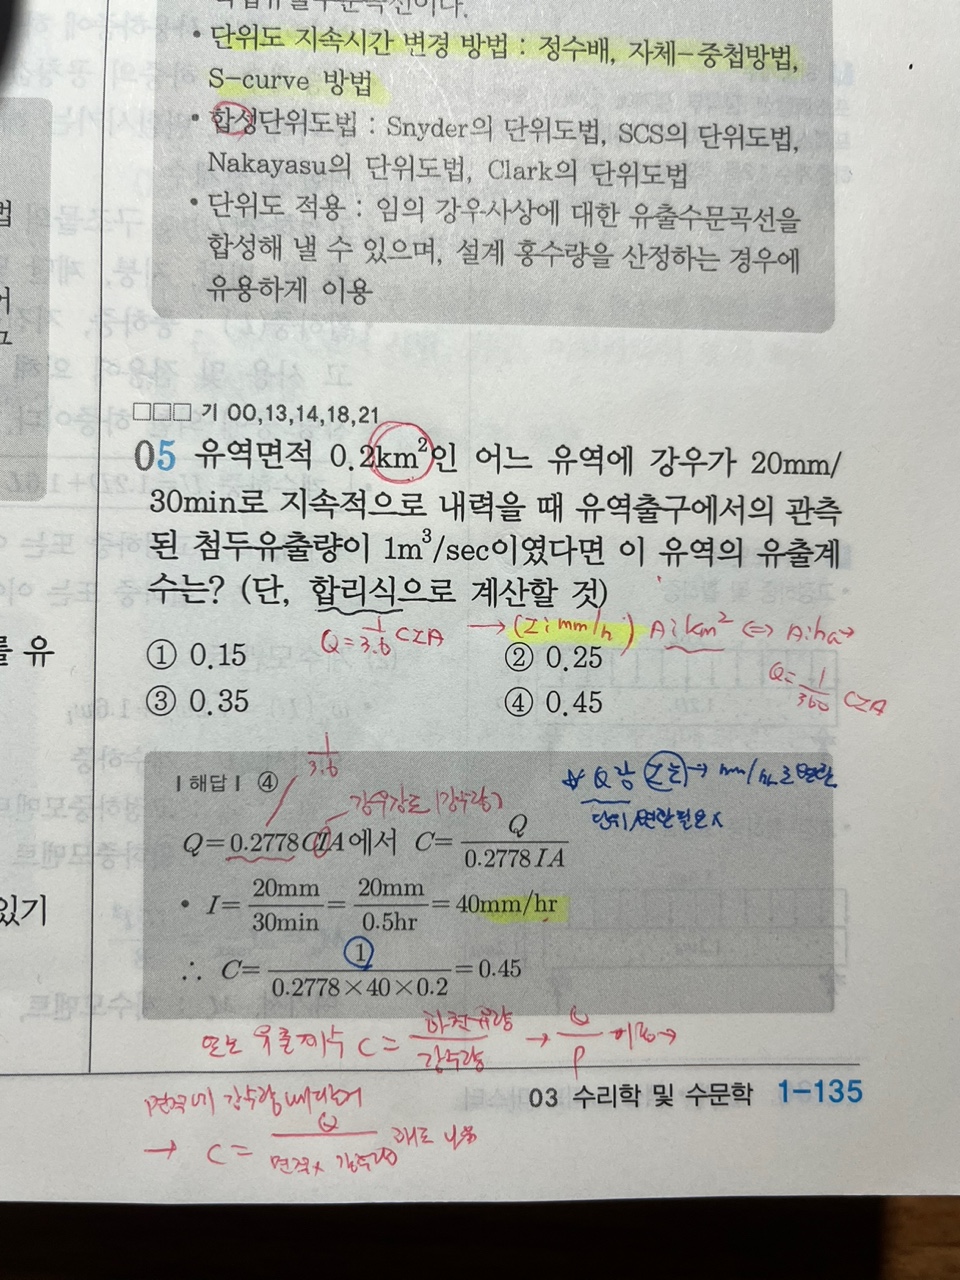 • 단위도 지속시간 변경 방법 : 정수배, 자체-중첩방법,
S-curve 방법
• 합성단위도법 : Snyder의 단위도법, SCS의 단위도법,
Nakayasu의 단위도법, Clark의 단위도법
• 단위도 적용 : 임의 강우사상에 대한 유출수문곡선을
합성해 낼 수 있으며, 설계 홍수량을 산정하는 경우에
유용하게 이용
법
를 유
있기
□□□ 기 00,13,14,18,21
05 유역면적 0.2km²인 어느 유역에 강우가 20mm/
30min로 지속적으로 내력을 때 유역출구에서의 관측
된 첨두유출량이 1m³/sec이였다면 이 유역의 유출계
수는? (단, 합리식으로 계산할 것)
Q=1/3.6 CIA → (I: mm/h) A: km² ⇔ A: ha →
① 0.15 ② 0.25
Q=1/360 CIA
③ 0.35 ④ 0.45
1/3.6
| 해답 | ④
강우강도 (강수량)
Q=0.2778CIA에서 C=Q/0.2778IA
• I=20mm/30min=20mm/0.5hr=40mm/hr
∴ C=1/0.2778×40×0.2=0.45
또는 유출계수 C = 하천유량/강수량 → Q/P
03 수리학 및 수문학 1-135
→ C = Q/면적×강수량